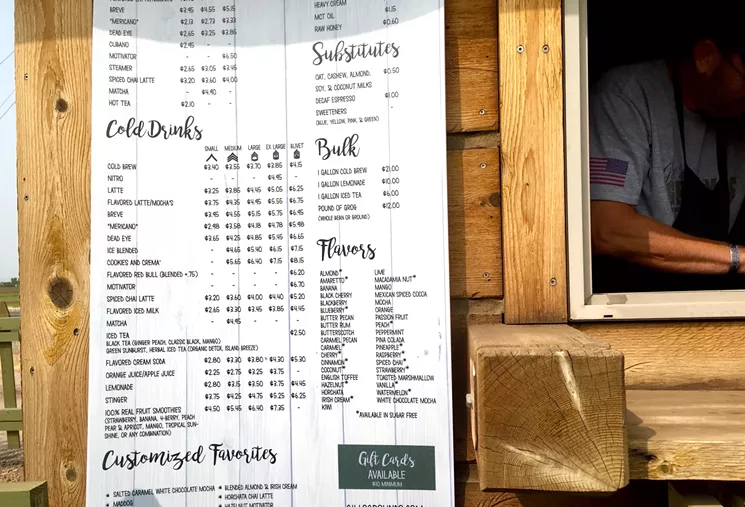 BREVE $3.95 $4.55 $5.15
"MERICANO" $2.13 $2.73 $3.33
DEAD EYE $2.65 $3.25 $3.85
CUBANO $2.95 - -
MOTIVATOR - - $6.50
STEAMER $2.65 $3.05 $3.45
SPICED CHAI LATTE $3.20 $3.60 $4.00
MATCHA - $4.90 -
HOT TEA $2.10 - -
Cold Drinks
SMALL MEDIUM LARGE EX LARGE BLNVT
COLD BREW $3.40 $3.55 $3.70 $3.85 $4.15
NITRO - - - $4.95 -
LATTE $3.25 $3.85 $4.45 $5.05 $6.25
FLAVORED LATTE/MOCHA'S $3.75 $4.35 $4.95 $5.55 $6.75
BREVE $3.95 $4.55 $5.15 $5.75 $6.95
"MERICANO" $2.98 $3.58 $4.18 $4.78 $5.98
DEAD EYE $3.65 $4.25 $4.85 $5.45 $6.65
ICE BLENDED - $4.65 $5.40 $6.15 $7.15
COOKIES AND CREMA* - $5.65 $6.40 $7.15 $8.15
FLAVORED RED BULL (BLENDED +.75) - - - - $6.20
MOTIVATOR - - - - $6.70
SPICED CHAI LATTE $3.20 $3.60 $4.00 $4.40 $5.20
FLAVORED ICED MILK $2.65 $3.30 $3.45 $3.85 $4.45
MATCHA - $4.95 - - -
ICED TEA $2.50
BLACK TEA (GINGER PEACH, CLASSIC BLACK, MANGO)
GREEN SUNBURST, HERBAL ICED TEA (ORGANIC DETOX, ISLAND BREEZE)
FLAVORED CREAM SODA $2.80 $3.30 $3.80 $4.30 $5.30
ORANGE JUICE/APPLE JUICE $2.25 $2.75 $3.25 $3.75 -
LEMONADE $2.80 $3.15 $3.50 $3.75 $4.45
STINGER $3.75 $4.25 $4.75 $5.25 $6.25
100% REAL FRUIT SMOOTHIES $4.50 $5.45 $6.40 $7.35 -
(STRAWBERRY, BANANA, 4-BERRY, PEACH
PEAR & APRICOT, MANGO, TROPICAL SUN-
SHINE, OR ANY COMBINATION)
Customized Favorites
* SALTED CARAMEL WHITE CHOCOLATE MOCHA * BLENDED ALMOND & IRISH CREAM
* MADDOG * HORCHATA CHAI LATTE
* HAZELNUT MOTIVATOR
HEAVY CREAM
MCT OIL $1.15
RAW HONEY $0.60
Substitutes
OAT, CASHEW, ALMOND, $0.50
SOY, & COCONUT MILKS
DECAF ESPRESSO $1.00
SWEETENERS -
(BLUE, YELLOW, PINK, & GREEN)
Bulk
1 GALLON COLD BREW $21.00
1 GALLON LEMONADE $10.00
1 GALLON ICED TEA $6.00
POUND OF GROG $12.00
(WHOLE BEAN OR GROUND)
Flavors
ALMOND* LIME
AMARETTO* MACADAMIA NUT*
BANANA MANGO
BLACK CHERRY MEXICAN SPICED COCOA
BLACKBERRY MOCHA
BLUEBERRY* ORANGE
BUTTER PECAN PASSION FRUIT
BUTTER RUM PEACH*
BUTTERSCOTCH PEPPERMINT
CARAMEL PECAN PINA COLADA
CARAMEL* PINEAPPLE
CHERRY* RASPBERRY*
CINNAMON* SPICED CHAI*
COCONUT* STRAWBERRY*
ENGLISH TOFFEE TOASTED MARSHMALLOW
HAZELNUT* VANILLA*
HORCHATA WATERMELON*
IRISH CREAM* WHITE CHOCOLATE MOCHA
KIWI
*AVAILABLE IN SUGAR FREE
Gift Cards
AVAILABLE
$10 MINIMUM